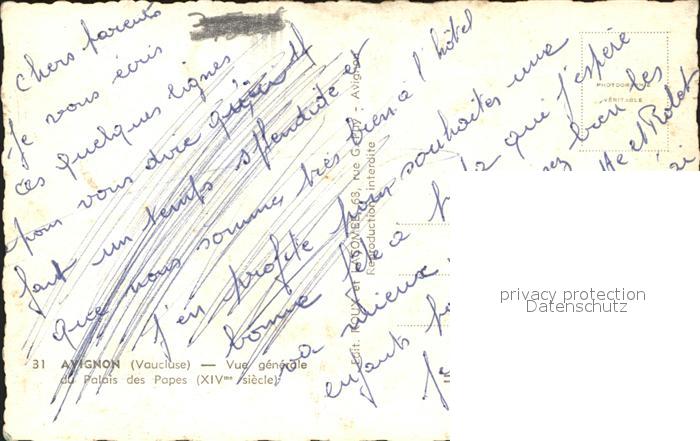 chers parents
Je vous écris
ces quelques lignes
pour vous dire qu'il
fait un temps splendide et
que nous sommes très bien à l'hôtel
J'en profite pour vous souhaiter une
bonne fête à
que j'espère
va mieux
bien les
enfants
et
Je
PHOTOGRAPHIE
VÉRITABLE
Edit. ROUX et LACOMBE, 63, rue Avignon
Reproduction interdite
31 AVIGNON (Vaucluse) — Vue générale
du Palais des Papes (XIVme siècle)
privacy protection
Datenschutz